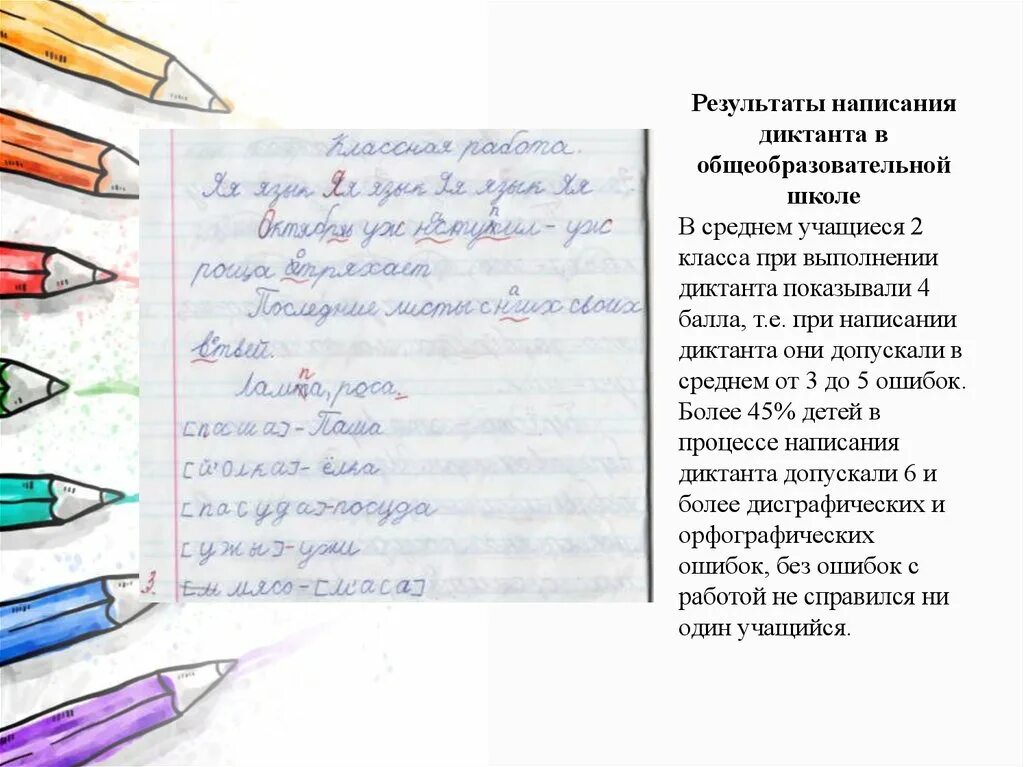 Классная работа.
Яя язык Яя язык Яя язык Яя
Октябры уж нступил - уж
п
роща отряхает
о
Последние листы с нгих своих
а
втвей.
Лампа, роса.
п
[паша] - Паша
[й'олка] - ёлка
[пасуда] - посуда
[ужы] - ужи
[м мясо - [м'аса]
3.
Результаты написания
диктанта в
общеобразовательной
школе
В среднем учащиеся 2
класса при выполнении
диктанта показывали 4
балла, т.е. при написании
диктанта они допускали в
среднем от 3 до 5 ошибок.
Более 45% детей в
процессе написания
диктанта допускали 6 и
более дисграфических и
орфографических
ошибок, без ошибок с
работой не справился ни
один учащийся.